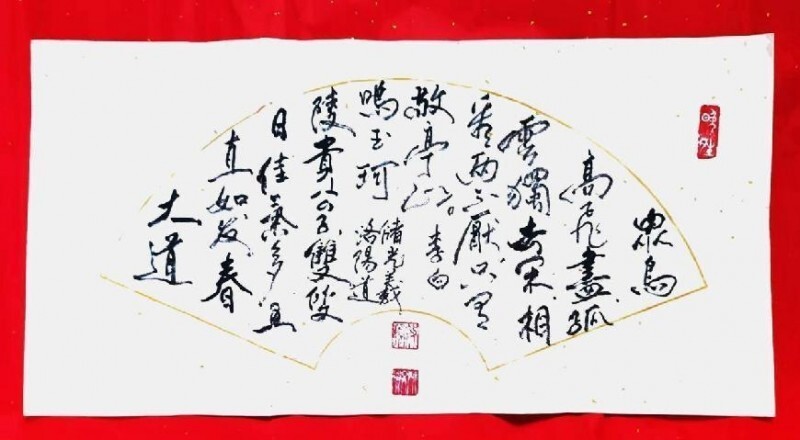 眾鳥
高飛盡孤
雲獨去闲相
看兩不厭只有
敬亭山
李白
大道
直如发春
日佳氣多五
陵貴公子雙雙
鳴玉珂
儲光羲
洛陽道